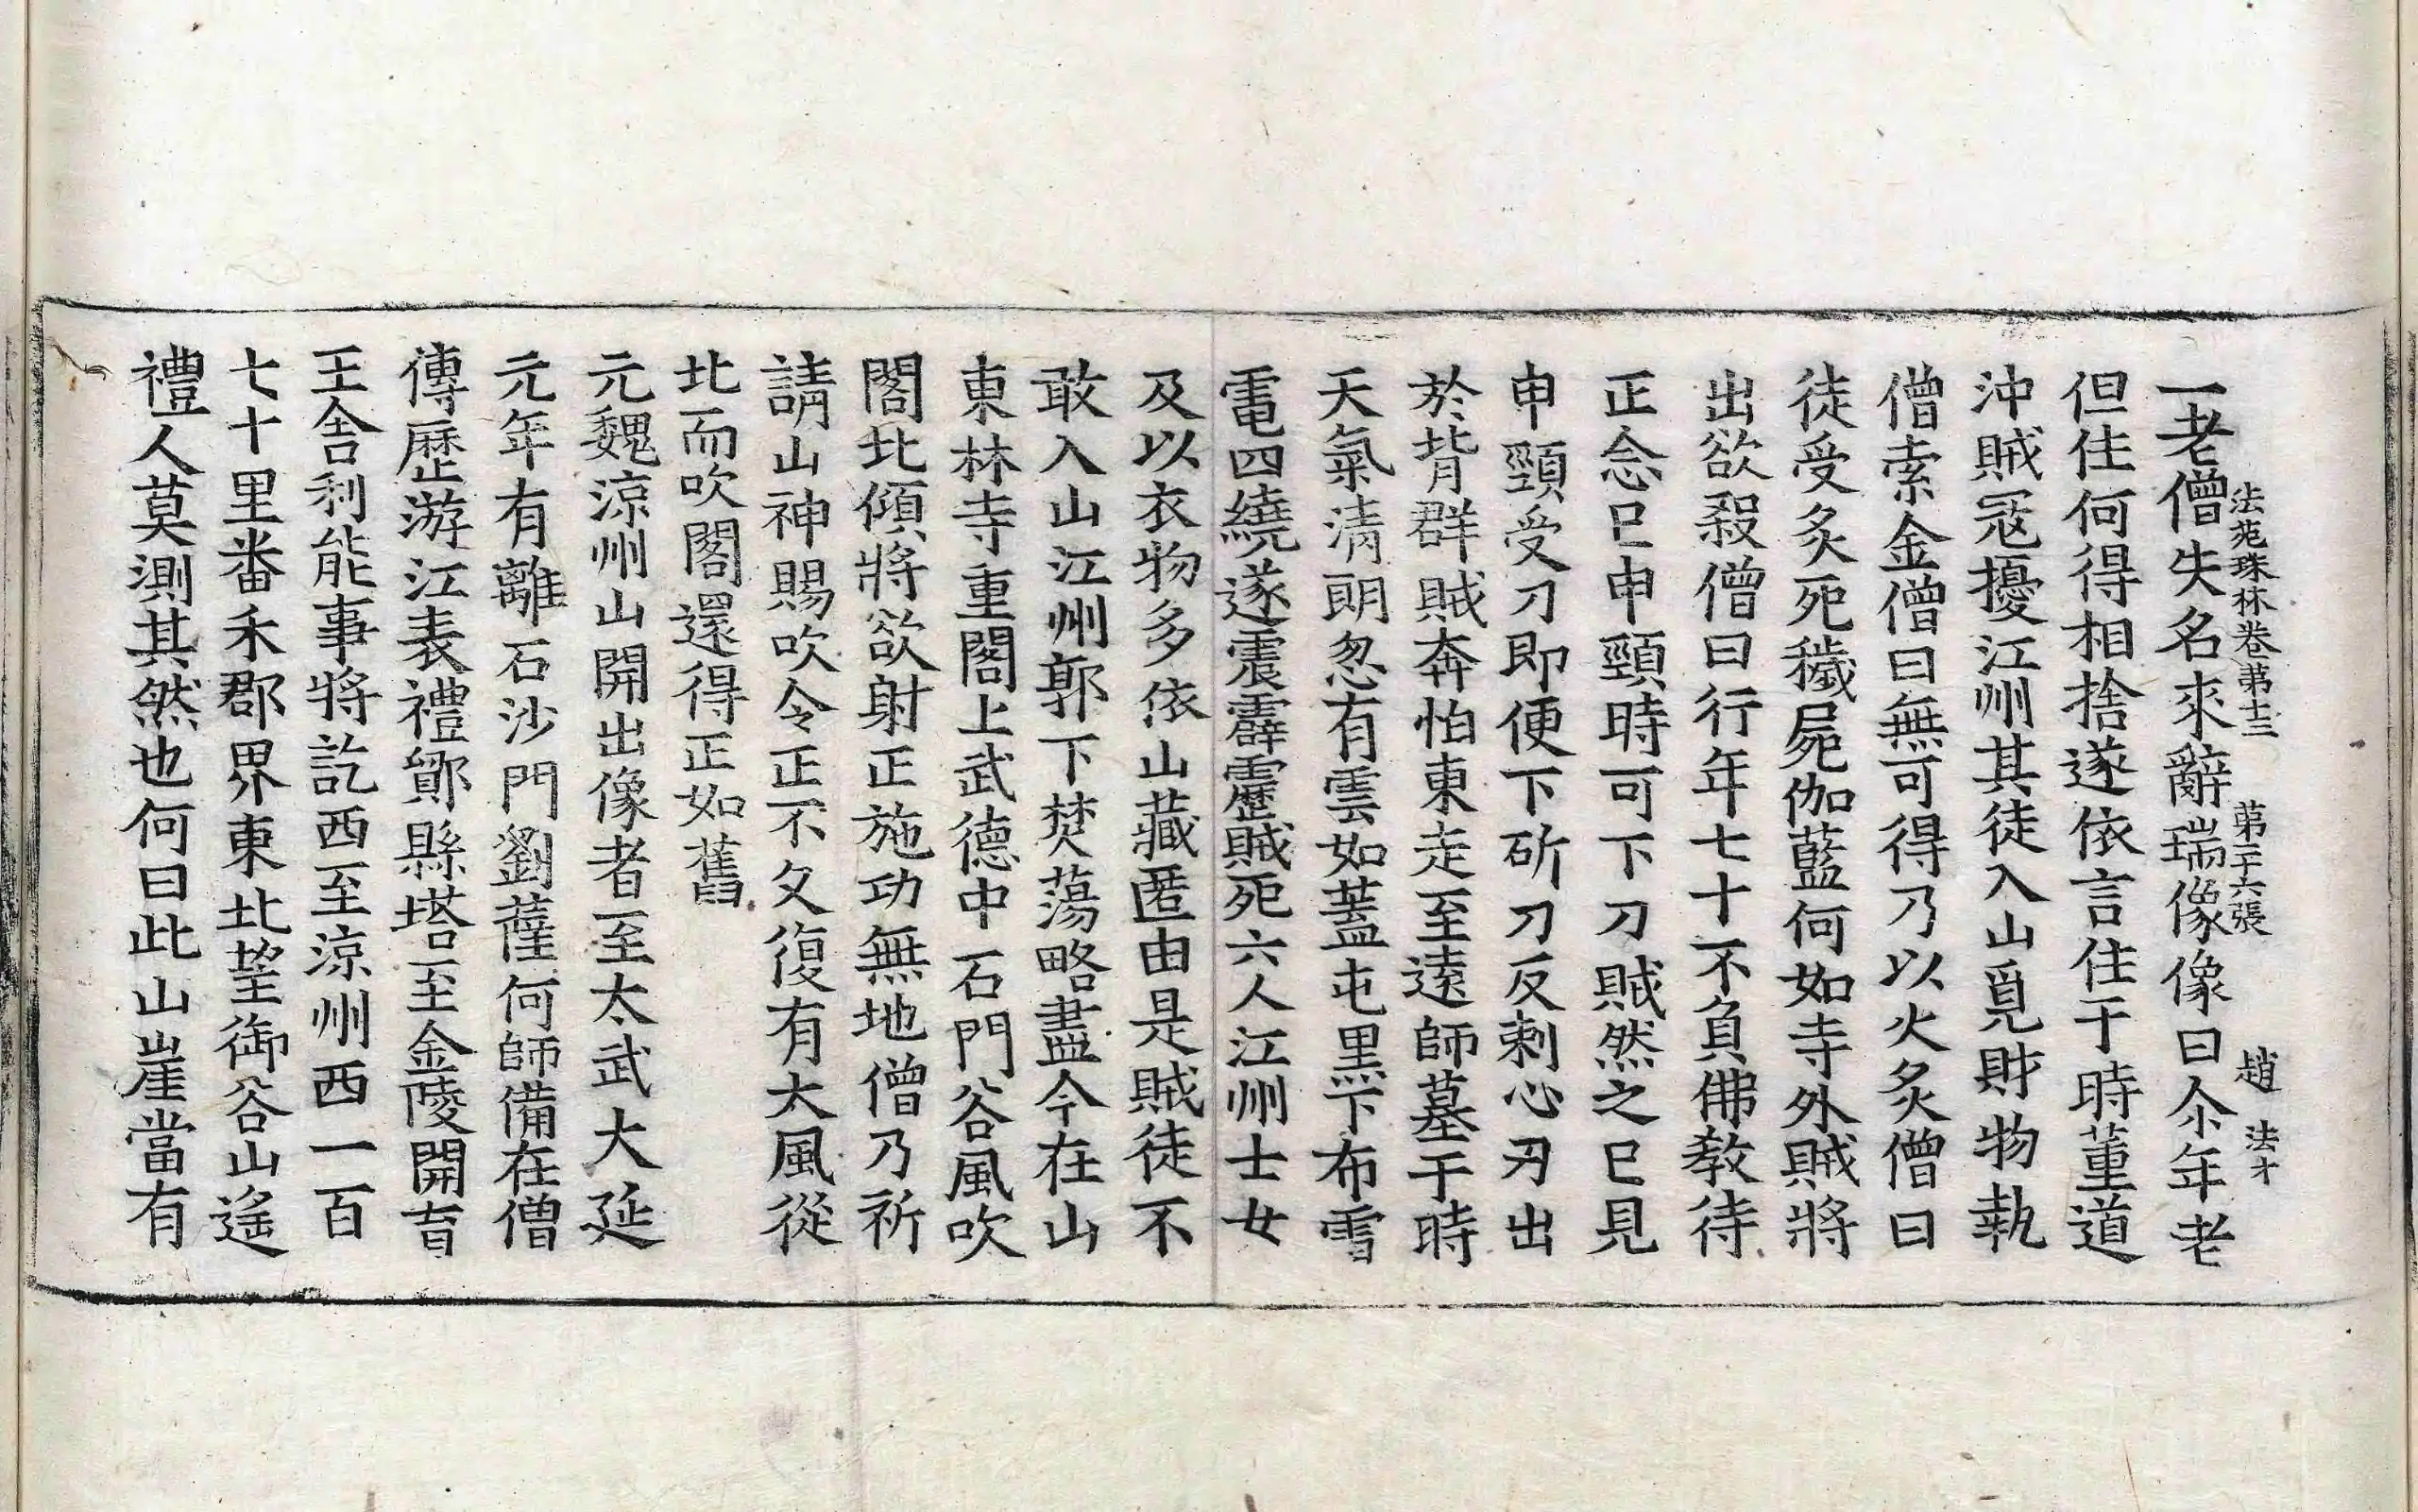 一老僧失名來辭瑞像像曰尒年老
法苑珠林卷第十三　第二十六張　趙　法才
但住何得相捨遂依言住于時董道
沖賊寇擾江州其徒入山覓財物執
僧索金僧曰無可得乃以火炙僧曰
徒受炙死穢屍伽藍何如寺外賊將
出欲殺僧曰行年七十不負佛教待
正念已申頸時可下刀賊然之已見
申頸受刀即便下斫刀反刺心刃出
於背群賊奔怕東走至遠師墓于時
天氣清朗忽有雲如蓋屯黑下布雪
電四繞遂震霹靂賊死六人江州士女
及以衣物多依山藏匿由是賊徒不
敢入山江州郭下焚蕩略盡今在山
東林寺重閣上武德中石門谷風吹
閣北傾將欲射正施功無地僧乃祈
請山神賜吹令正不久復有大風從
北而吹閣還得正如舊
元魏涼州山開出像者至太武大延
元年有離石沙門劉薩何師備在僧
傳歷游江表禮鄮縣塔至金陵開育
王舍利能事將訖西至涼州西一百
七十里番禾郡界東北望御谷山遙
禮人莫測其然也何曰此山崖當有